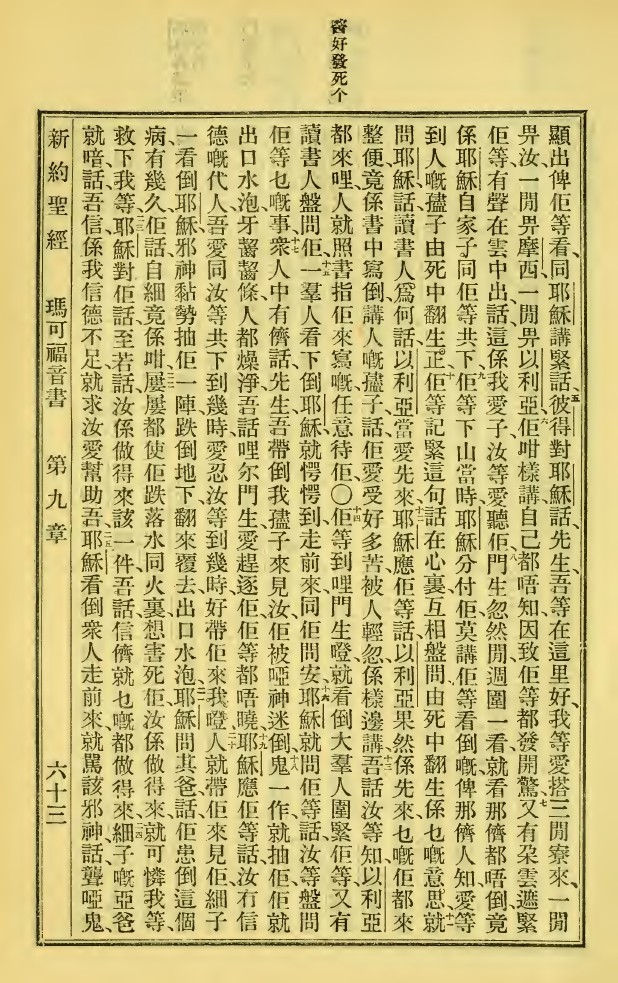 醫好發死个
顯出俾佢等看、同耶穌講緊話、五彼得對耶穌話、先生、吾等在這里好、我等愛搭三閒寮來、一閒
畀汝、一閒畀摩西、一閒畀以利亞、六佢咁樣講、自己都唔知、因致佢等都發開驚、七又有朵雲遮緊
佢等、有聲在雲中出、話、這係我愛子、汝等愛聽佢、八門生忽然閒週圍一看、就看那儕都唔倒、竟
係耶穌自家子同佢等共下、九佢等下山當時、耶穌分付佢莫講佢等看倒嘅俾那儕人知、愛等
到人嘅孻子由死中翻生正、十佢等記緊這句話在心裏、互相盤問、由死中翻生係乜嘅意思、十一就
問耶穌話、讀書人爲何話以利亞當愛先來、十二耶穌應佢等話、以利亞果然係先來、乜嘅佢都來
整便、竟係書中寫倒講人嘅孻子、話佢愛受好多苦、被人輕忽、係樣邊講、十三吾話汝等知、以利亞
都來哩、人就照書指佢來寫嘅、任意待佢、〇十四佢等到哩門生嶝、就看倒大羣人圍緊佢等、又有
讀書人盤問佢、十五一羣人看下倒耶穌、就愕愕到、走前來同佢問安、十六耶穌就問佢等話、汝等盤問
佢等乜嘅事、十七衆人中有儕話、先生、吾帶倒我孻子來見汝、佢被啞神迷倒、十八鬼一作就抽佢、佢就
出口水泡、牙齧齧、條人都燥淨、吾話哩尔門生愛趕逐佢、佢等都唔曉、十九耶穌應佢等話、汝冇信
德嘅代人、吾愛同汝等共下到幾時、愛忍汝等到幾時、好帶佢來我嶝、二十人就帶佢來見佢、細子
一看倒耶穌、邪神黏勢抽佢一陣、跌倒地下、翻來覆去、出口水泡、二一耶穌問其爸話、佢患倒這個
病有幾久、佢話、自細、二二竟係咁屢屢都使佢跌落水同火裏、想害死佢、汝係做得來、就可憐我等、
救下我等、二三耶穌對佢話、至若話汝係做得來該一件、吾話信儕就乜嘅都做得來、二四細子嘅亞爸
就喑、話、吾信、係我信德不足、就求汝愛幫助吾、二五耶穌看倒衆人走前來、就駡該邪神、話、聾啞鬼、
新約聖經 瑪可福音書 第九章 六十三